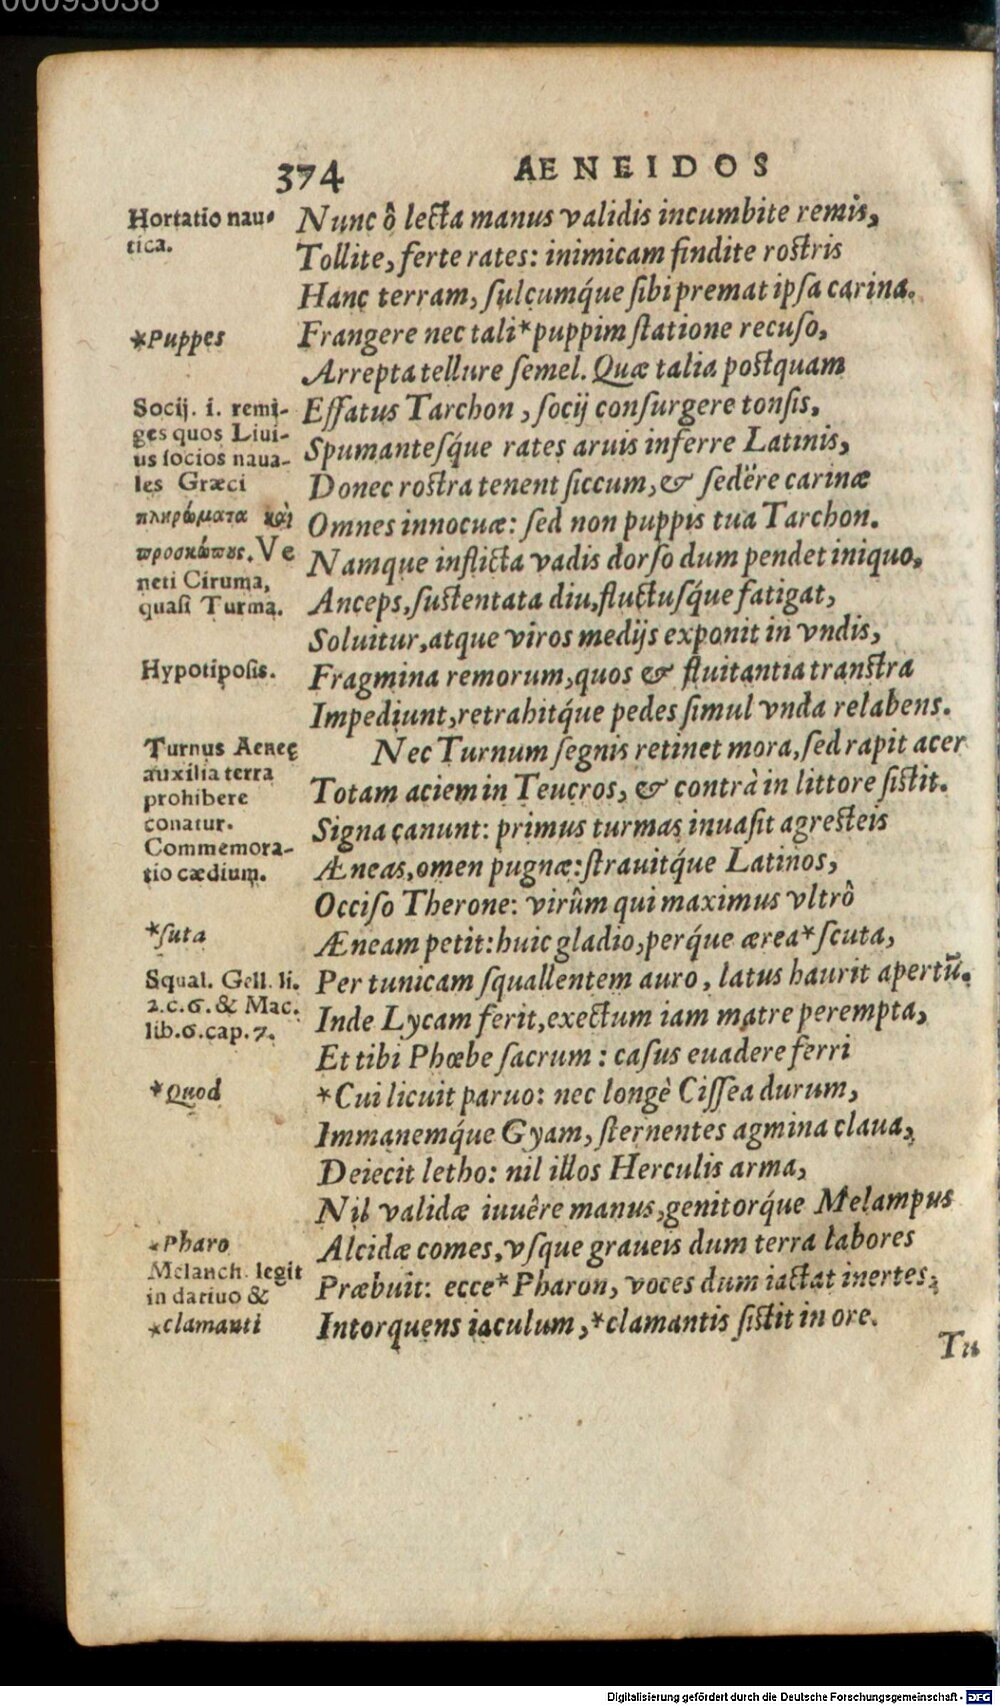 00093038
374 AENEIDOS
Hortatio nau-
tica.
Nunc ô lecta manus validis incumbite remis,
Tollite, ferte rates: inimicam findite rostris
Hanc terram, ſulcumq́ue ſibi premat ipſa carina.
*Puppes
Frangere nec tali*puppim ſtatione recuſo,
Arrepta tellure ſemel. Quæ talia postquam
Socij. i. remi-
ges quos Liui-
us ſocios naua-
les Græci
πληρώματα καὶ
προσκώπους. Ve
neti Ciruma,
quaſi Turma.
Effatus Tarchon, ſocij conſurgere tonſis,
Spumanteſq́ue rates aruis inferre Latinis,
Donec rostra tenent ſiccum, & ſedêre carinæ
Omnes innocuæ: ſed non puppis tua Tarchon.
Namque inflicta vadis dorſo dum pendet iniquo,
Anceps, ſustentata diu, fluctuſq́ue fatigat,
Soluitur, atque viros medijs exponit in vndis,
Hypotipoſis.
Fragmina remorum, quos & fluitantia transtra
Impediunt, retrahitq́ue pedes ſimul vnda relabens.
Turnus Aeneę
auxilia terra
prohibere
conatur.
Commemora-
tio cædium.
Nec Turnum ſegnis retinet mora, ſed rapit acer
Totam aciem in Teucros, & contrà in littore ſistit.
Signa canunt: primus turmas inuaſit agresteis
Æneas, omen pugnæ: ſtrauitq́ue Latinos,
Occiſo Therone: virûm qui maximus vltrò
*ſuta
Æneam petit: huic gladio, perq́ue ærea*ſcuta,
Squal. Gell. li.
2.c.6. & Mac.
lib.6.cap.7.
Per tunicam ſquallentem auro, latus haurit apertū.
Inde Lycam ferit, exectum iam matre perempta,
Et tibi Phœbe ſacrum: caſus euadere ferri
*Quod
*Cui licuit paruo: nec longè Ciſſea durum,
Immanemq́ue Gyam, ſternentes agmina claua,
Deiecit letho: nil illos Herculis arma,
Nil validæ iuuêre manus, genitorq́ue Melampus
*Pharo
Melanch. legit
in datiuo &
*clamanti
Alcidæ comes, vſque graueis dum terra labores
Præbuit: ecce*Pharon, voces dum iactat inertes,
Intorquens iaculum,*clamantis ſistit in ore.
Tu
Digitalisierung gefördert durch die Deutsche Forschungsgemeinschaft - DFG